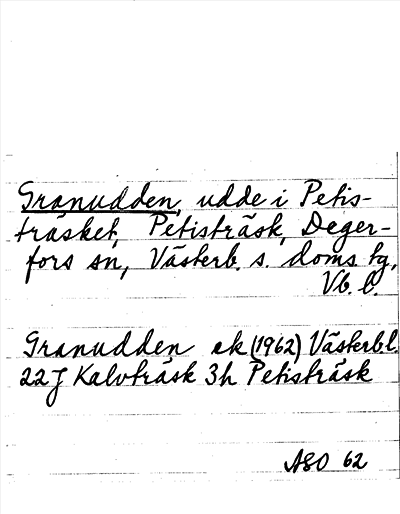 Granudden, udde i Petis-
träsket, Petisträsk, Deger-
fors sn, Västerb. s. doms tg,
Vb. l.
Granudden ek (1962) Västerb l.
22J Kalvträsk 3h Petisträsk
ASO 62